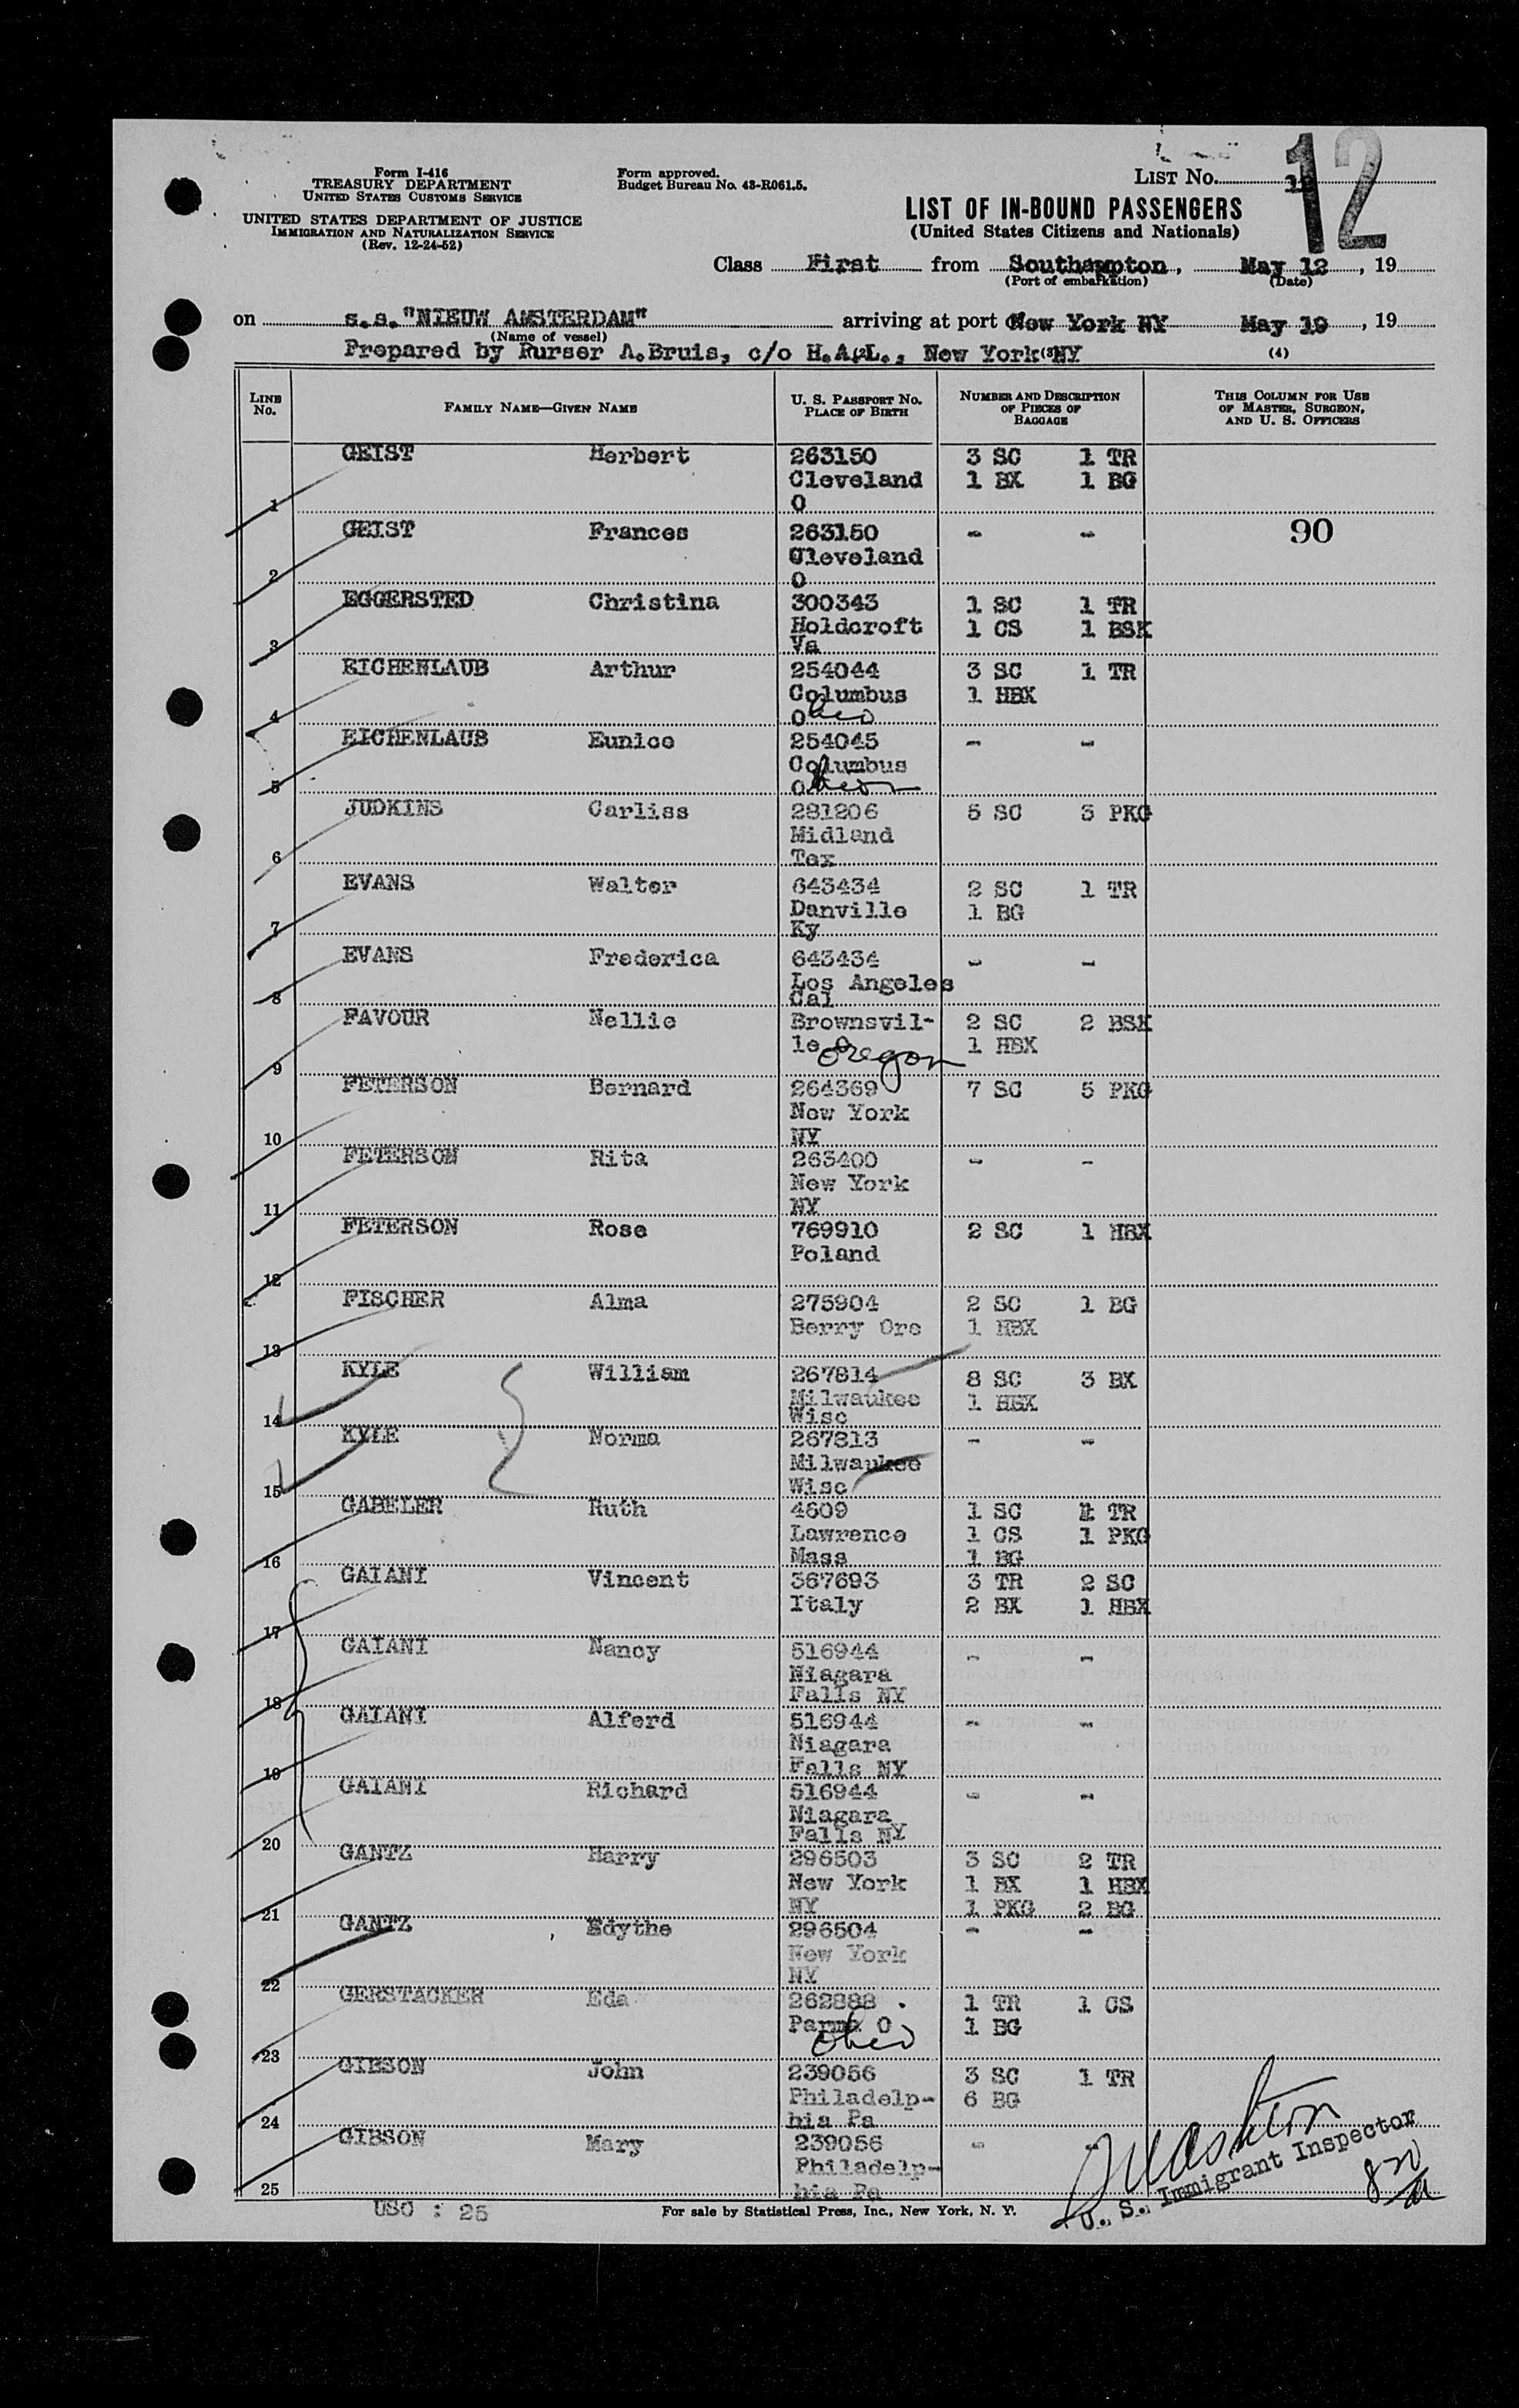 Form I-416
TREASURY DEPARTMENT
UNITED STATES CUSTOMS SERVICE
UNITED STATES DEPARTMENT OF JUSTICE
IMMIGRATION AND NATURALIZATION SERVICE
(Rev. 12-24-52)
Form approved.
Budget Bureau No. 43-R061.5.
LIST No. 12
12
LIST OF IN-BOUND PASSENGERS
(United States Citizens and Nationals)
Class First from Southampton, May 12, 19
(Port of embarkation) (Date)
on s.s."NIEUW AMSTERDAM" arriving at port of New York NY May 19, 19
(Name of vessel)
Prepared by Purser A.Bruis, c/o H.A.L., New York NY
(2) (3) (4)
LINE No. FAMILY NAME—GIVEN NAME U. S. PASSPORT No. PLACE OF BIRTH NUMBER AND DESCRIPTION OF PIECES OF BAGGAGE THIS COLUMN FOR USE OF MASTER, SURGEON, AND U. S. OFFICERS
GEIST Herbert 263150 3 SC 1 TR
Cleveland 1 BX 1 BG
1 O
GEIST Frances 263150 - - 90
Cleveland
2 O
EGGERSTED Christina 300343 1 SC 1 TR
Holdcroft 1 CS 1 BSK
3 Va
EICHENLAUB Arthur 254044 3 SC 1 TR
Columbus 1 HBX
4 Ohio
EICHENLAUB Eunice 254045 - -
Columbus
5 Ohio
JUDKINS Carliss 281206 5 SC 3 PKG
Midland
6 Tex
EVANS Walter 643434 2 SC 1 TR
Danville 1 BG
7 Ky
EVANS Frederica 643434 - -
Los Angeles
8 Cal
FAVOUR Nellie Brownsvil- 2 SC 2 BSK
le O Oregon 1 HBX
9
FETERSON Bernard 264369 7 SC 5 PKG
New York
10 NY
FETERSON Rita 263400 - -
New York
11 NY
FETERSON Rose 769910 2 SC 1 HBX
Poland
12
FISCHER Alma 275904 2 SC 1 BG
Berry Ore 1 HBX
13
KYLE William 267814 8 SC 3 BX
Milwaukee 1 HBX
14 Wisc
KYLE Norma 267813 - -
Milwaukee
15 Wisc
GABELER Ruth 4609 1 SC 1 TR
Lawrence 1 CS 1 PKG
16 Mass 1 BG
GAIANI Vincent 367693 3 TR 2 SC
Italy 2 BX 1 HBX
17
GAIANI Nancy 516944 - -
Niagara
18 Falls NY
GAIANI Alferd 516944 - -
Niagara
19 Falls NY
GAIANI Richard 516944 - -
Niagara
20 Falls NY
GANTZ Harry 296503 3 SC 2 TR
New York 1 BX 1 HBX
21 NY 1 PKG 2 BG
GANTZ Edythe 296504 - -
New York
22 NY
GERSTACKER Eda 262888 1 TR 1 CS
Parma O 1 BG
Ohio
23
GIBSON John 239056 3 SC 1 TR
Philadelp- 6 BG
24 hia Pa
GIBSON Mary 239056 - -
Philadelp-
25 hia Pa
U. S. Immigrant Inspector
USC : 25 For sale by Statistical Press, Inc., New York, N. Y.